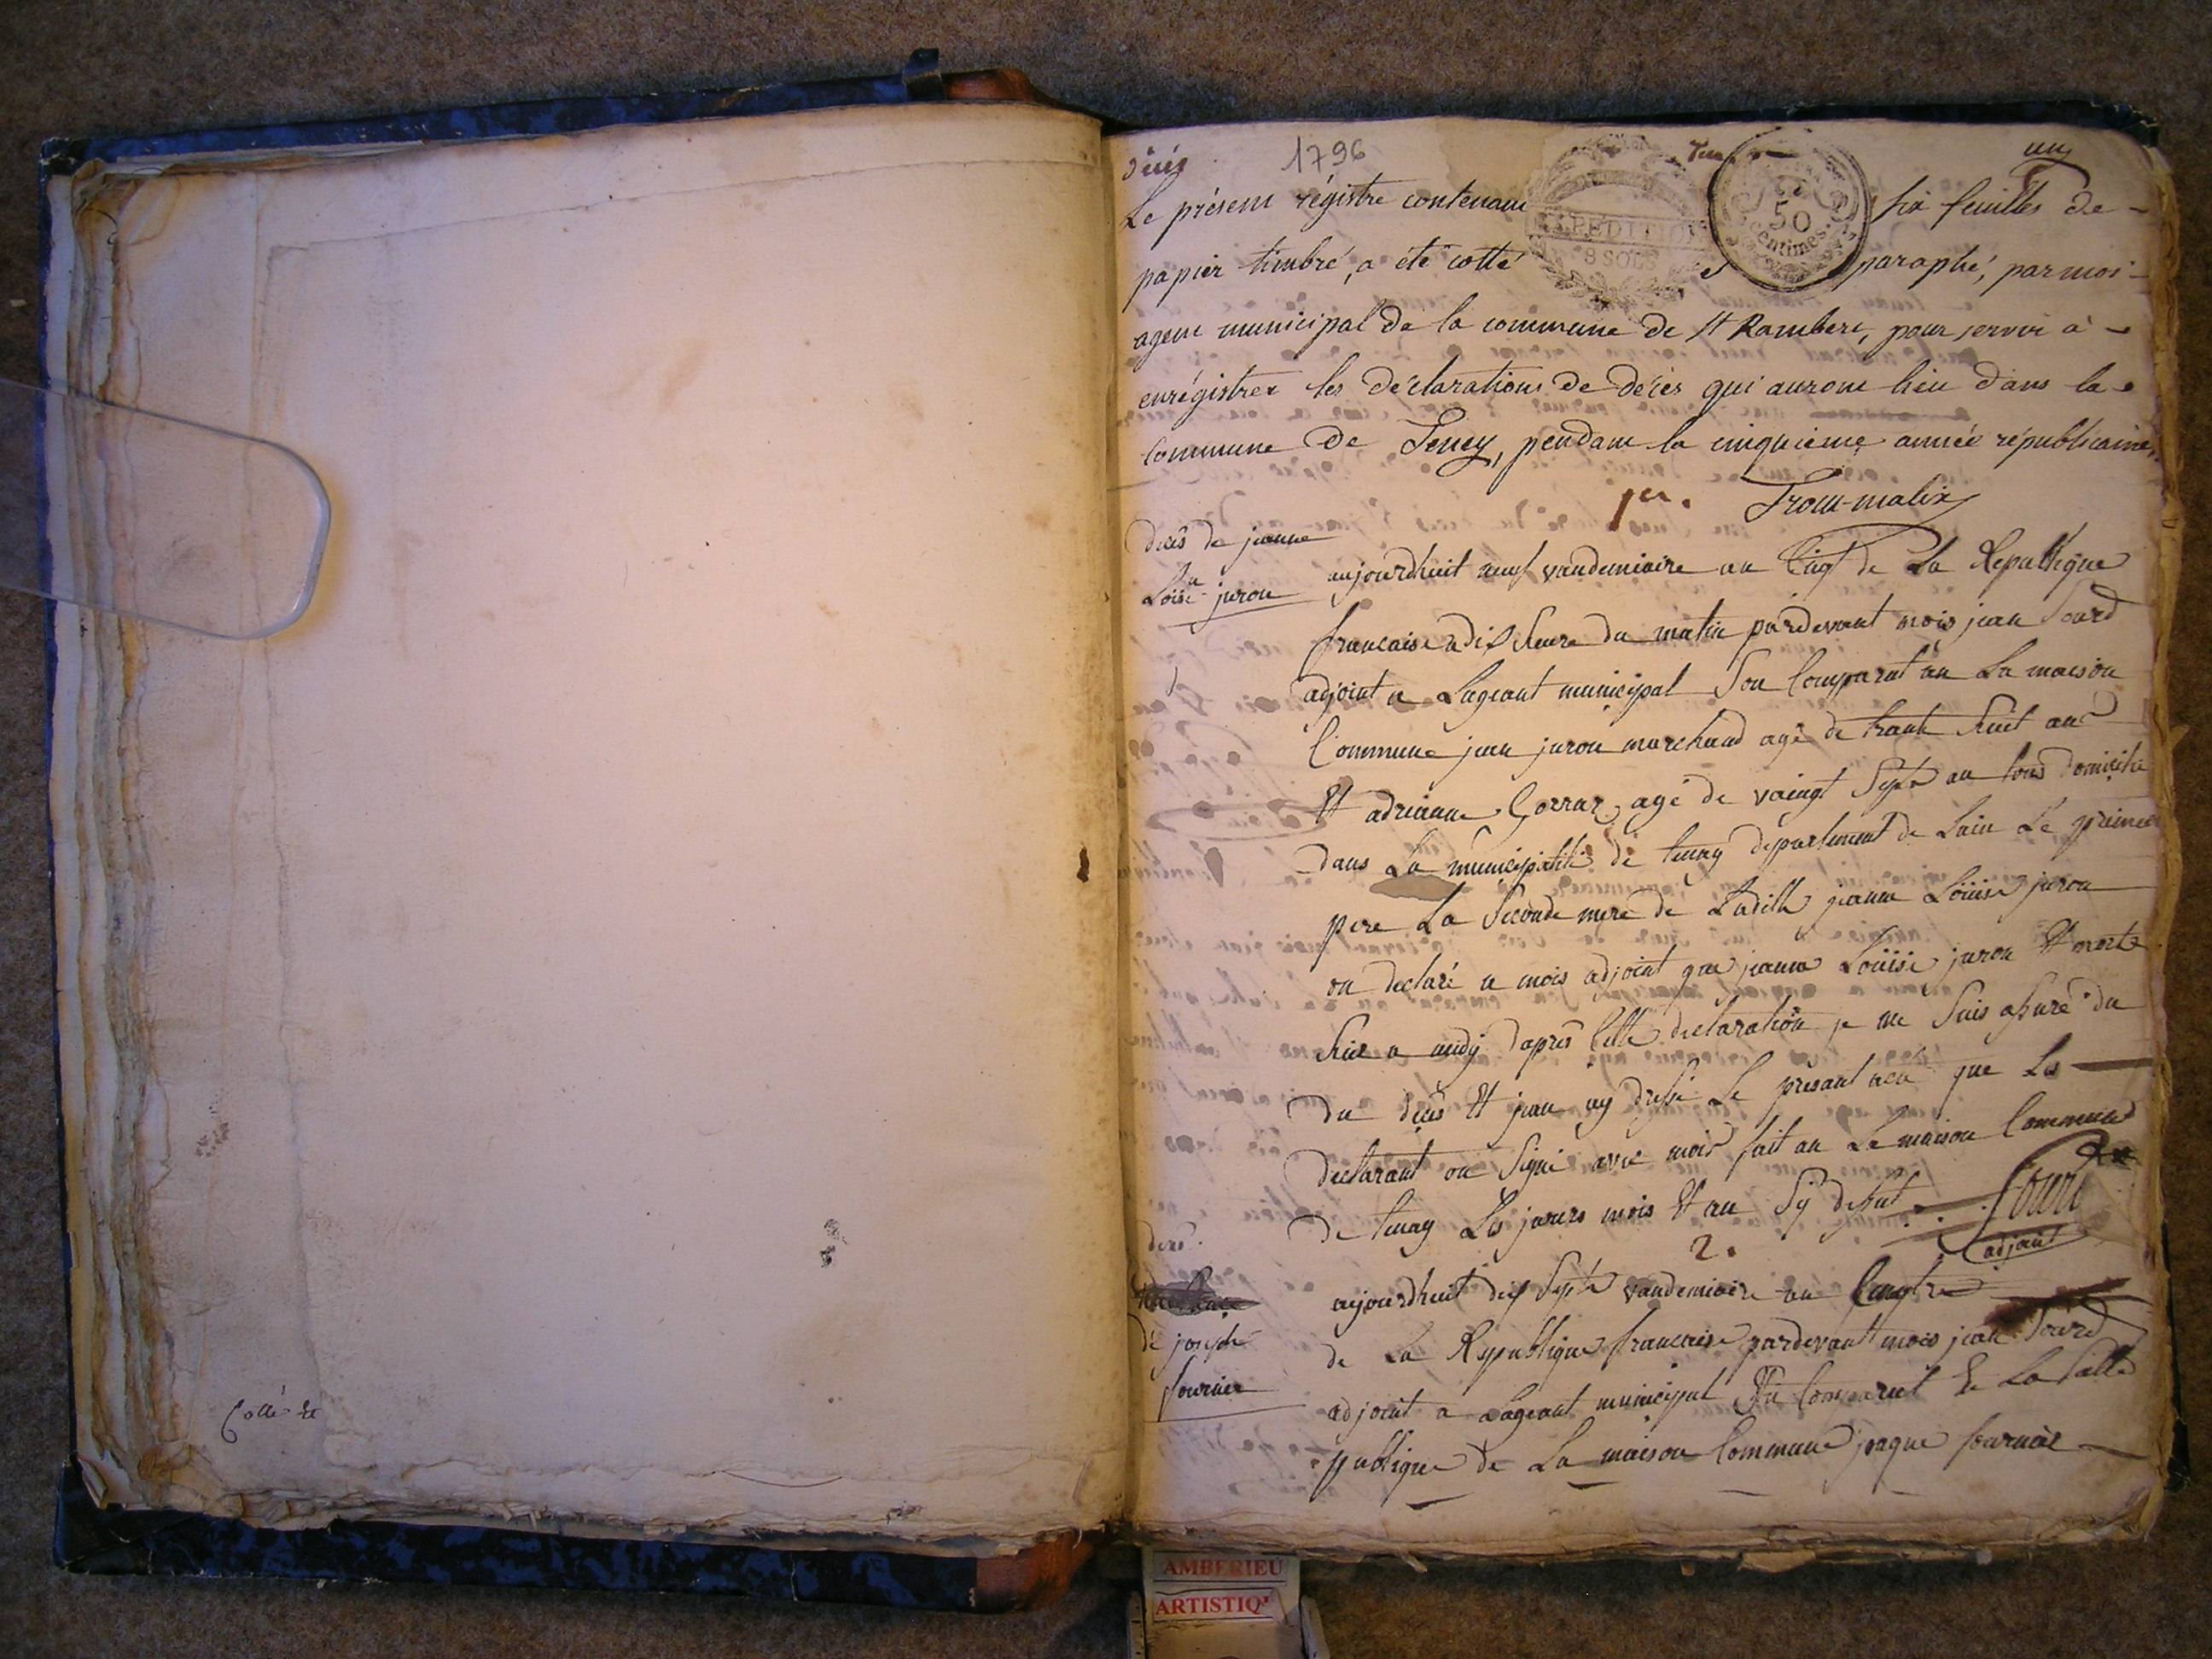 Collé et
décès 1796
un
Le présent régistre contenant six feuilles de
EXPEDITION
8 SOUS
50
centimes
papier timbré, a été cotté et paraphé, par moi
agent municipal de la commune de St Rambert, pour servir à
enrégistrer les déclarations de décès qui auront lieu dans la
commune de Teney, pendant la cinquième année républicaine.
1er. Trocu-malix
deces de jeanne
Loise juron
aujourdhuit neuf vandemiaire an Cinq de La Republique
francaise a dix heure du matin pardevant mois jean Sourd
adjoint a Lageant municipal Son Comparut an La maison
Commune jean juron marchand agé de trante huit ans
Et adrianne Gorraz agé de vaingt Septe an tous domicilie
dans La municipalité de tenay departement de Lain Le premier
pere La Seconde mere de Ladille jeanne Loüise juron
on declaré a mois adjoint que jeanne Loüise juron Et morte
hier a midy dapres Cette declaration je me Suis assuré du
du deces Et jean ay dressé Le presant acte que Les
declarant on Signé avec mois fait an La maison Commune
de tenay Les jours mois Et an Sy desut Sourd
adjoint
2.
deces
de joseph
fournier
aujourdhuit dix Septe vandemiaire an
de La Republique francaise pardevant mois jean Sourd
adjoint a Lageant municipal Et Comparut La Salle
publique de La maison Commune jaque fournier
AMBERIEU
ARTISTIQ'